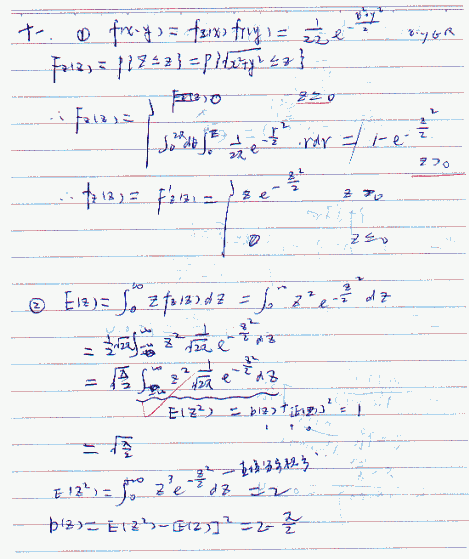 十一. ① f(x·y) = fx(x) fY(y) = 1/2π e^{-(x²+y²)/2} x·y∈R
Fz(z) = P{Z≤z} = P{√(x²+y²) ≤ z}
∴ Fz(z) = { 0 z≤0
∫₀^{2π} dθ ∫₀^{z} 1/2π e^{-r²/2} · r dr = 1 - e^{-z²/2} z>0
∴ fz(z) = F'z(z) = { z e^{-z²/2} z>0
0 z≤0
② E(z) = ∫₀^{+∞} z fz(z) dz = ∫₀^{∞} z² e^{-z²/2} dz
= 1/2 √2π ∫_{-∞}^{+∞} z² 1/√2π e^{-z²/2} dz
= √(π/2) ∫_{-∞}^{+∞} z² 1/√2π e^{-z²/2} dz
E(Z²) = D(z) + [E(z)]² = 1
= √(π/2)
E(z²) = ∫₀^{+∞} z³ e^{-z²/2} dz = 2
D(z) = E(z²) - [E(z)]² = 2 - π/2